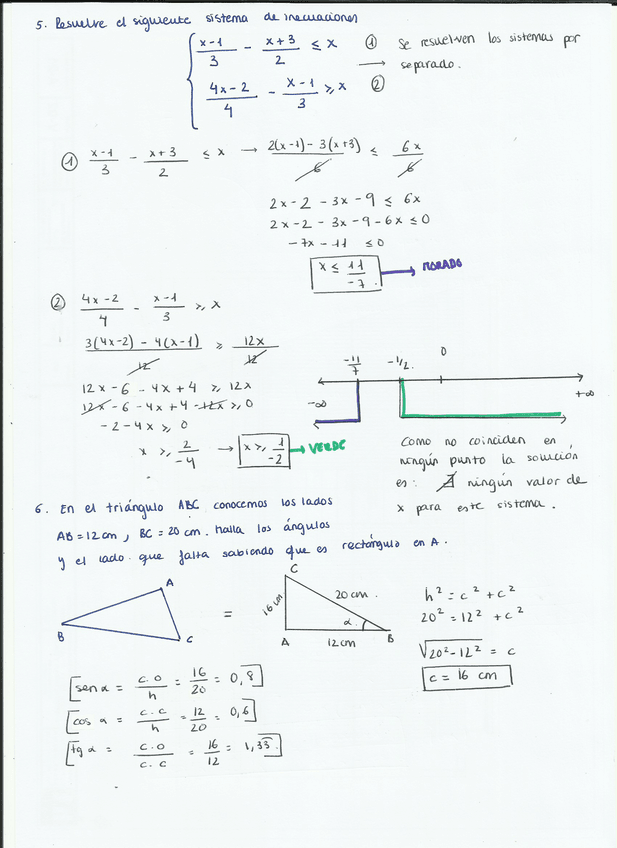 5. Resuelve el siguiente sistema de inecuaciones
{ x-1/3 - x+3/2 ≤ x ① Se resuelven los sistemas por
4x-2/4 - x-1/3 ≥ x ② → separado.
① x-1/3 - x+3/2 ≤ x → 2(x-1) - 3(x+3)/6 ≤ 6x/6
2x - 2 - 3x - 9 ≤ 6x
2x - 2 - 3x - 9 - 6x ≤ 0
-7x - 11 ≤ 0
x ≤ 11/-7 → MORADO
② 4x-2/4 - x-1/3 ≥ x
3(4x-2) - 4(x-1)/12 ≥ 12x/12
12x - 6 - 4x + 4 ≥ 12x
12x - 6 - 4x + 4 - 12x ≥ 0
-2 - 4x ≥ 0
x ≥ 2/-4 → x ≥ 1/-2 → VERDE
-11/7 -1/2 0
-∞ +∞
Como no coinciden en
ningún punto la solución
es: ∄ ningún valor de
x para este sistema.
6. En el triángulo ABC conocemos los lados
AB = 12 cm, BC = 20 cm. Halla los ángulos
y el lado que falta sabiendo que es rectángulo en A.
A
B
C
=
C
16 cm
20 cm.
α
A
12 cm
B
h² = c² + c²
20² = 12² + c²
√20² - 12² = c
c = 16 cm
sen α = c.o/h = 16/20 = 0,8
cos α = c.c/h = 12/20 = 0,6
tg α = c.o/c.c = 16/12 = 1,33